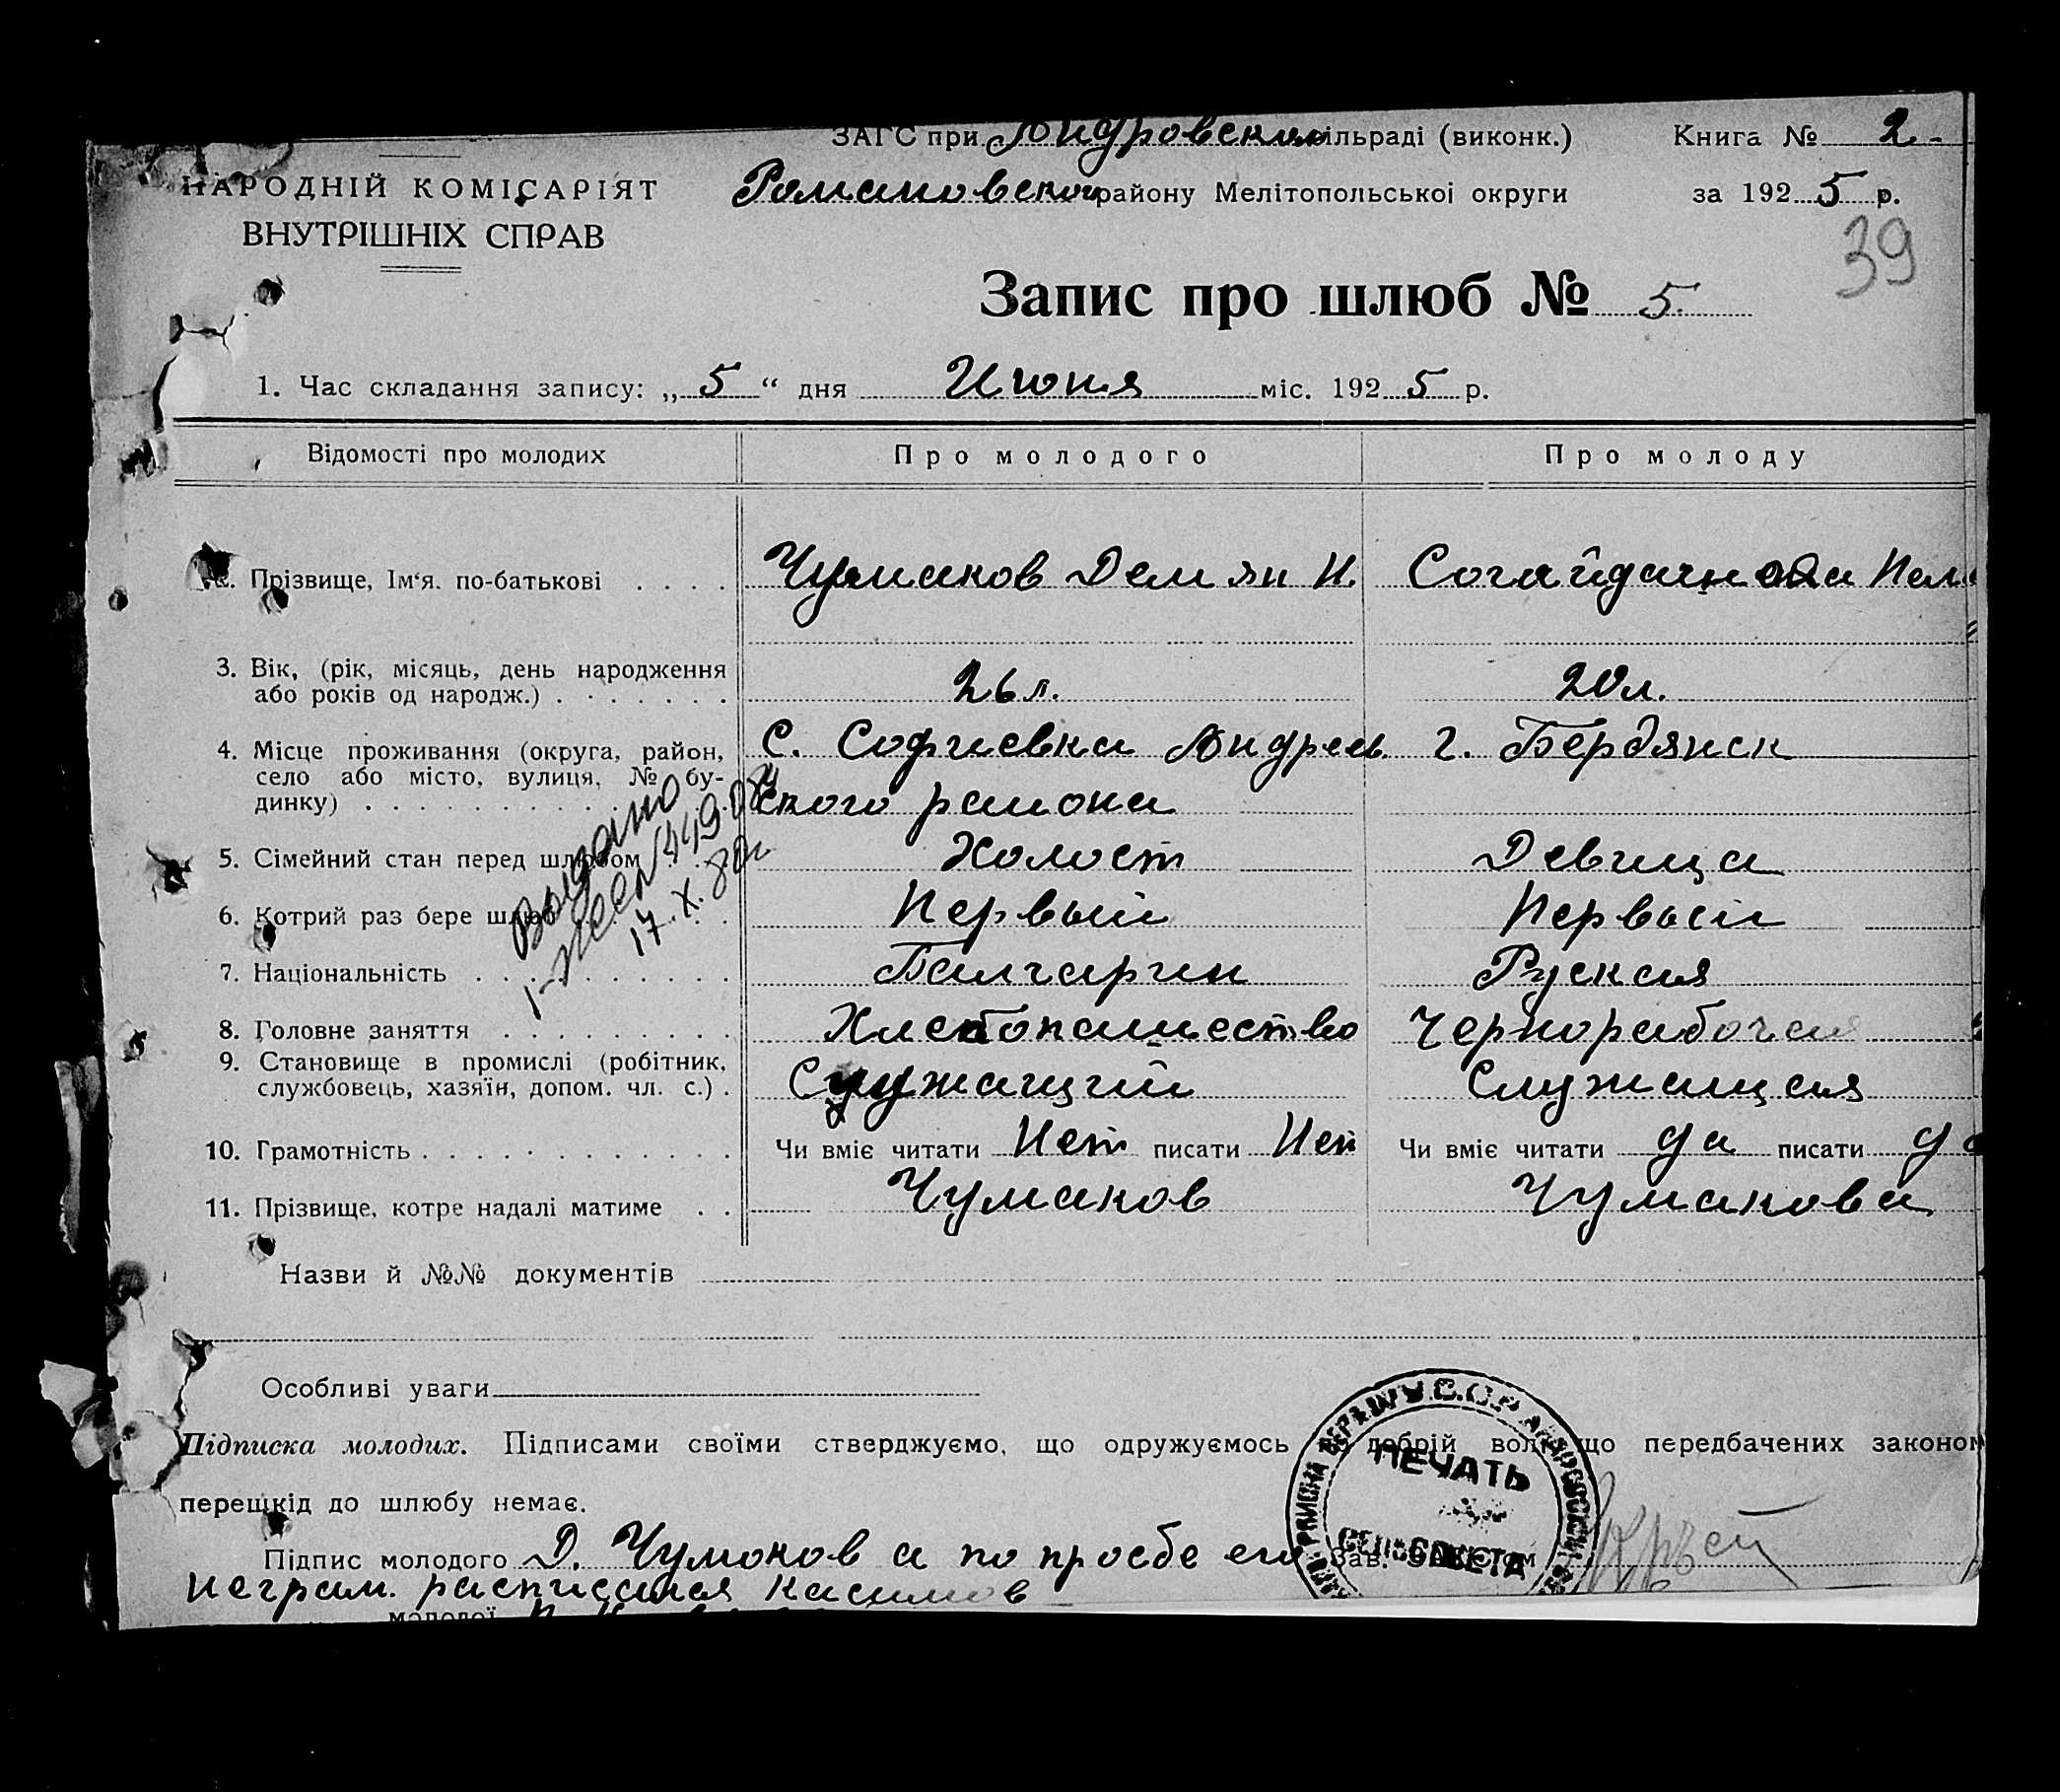 ЗАГС при Андровском сільраді (виконк.) Книга № 2.-
НАРОДНІЙ КОМІСАРІЯТ Романовского району Мелітопольської округи за 1925 р.
ВНУТРІШНІХ СПРАВ
39
Запис про шлюб № 5.
1. Час складання запису: „5“ дня Июня міс. 1925 р.
Відомості про молодих Про молодого Про молоду
Прізвище, Ім‘я. по-батькові Чумаков Демян И. Согайдачн
3. Вік, (рік, місяць, день народження
або років од народж.) 26 л. 20 л.
4. Місце проживання (округа, район, С. Софиевка Андреев г. Бердянск
село або місто, вулиця, № бу-
динку) ского раиона
5. Сімейний стан перед шлюбом Холост Девица
6. Котрий раз бере шлюб Первый Первый
Выдано
17.X.80г
7. Національність Балгарин Руская
8. Головне заняття Хлебопашество Чернорабочая
9. Становище в промислі (робітник,
службовець, хазяїн, допом. чл. с.) Служащий Служащая
10. Грамотність Чи вміє читати Нет писати Нет Чи вміє читати да писати да
11. Прізвище, котре надалі матиме Чумаков Чумакова
Назви й №№ документів
Особливі уваги
Підписка молодих. Підписами своїми стверджуємо, що одружуємось по добрій волі що передбачених законом
перешкід до шлюбу немає.
ПЕЧАТЬ
СЕЛЬСОВЕТА
Підпис молодого Д. Чумоков а по просбе его Зав.
неграм. расписался Касимов
молодої